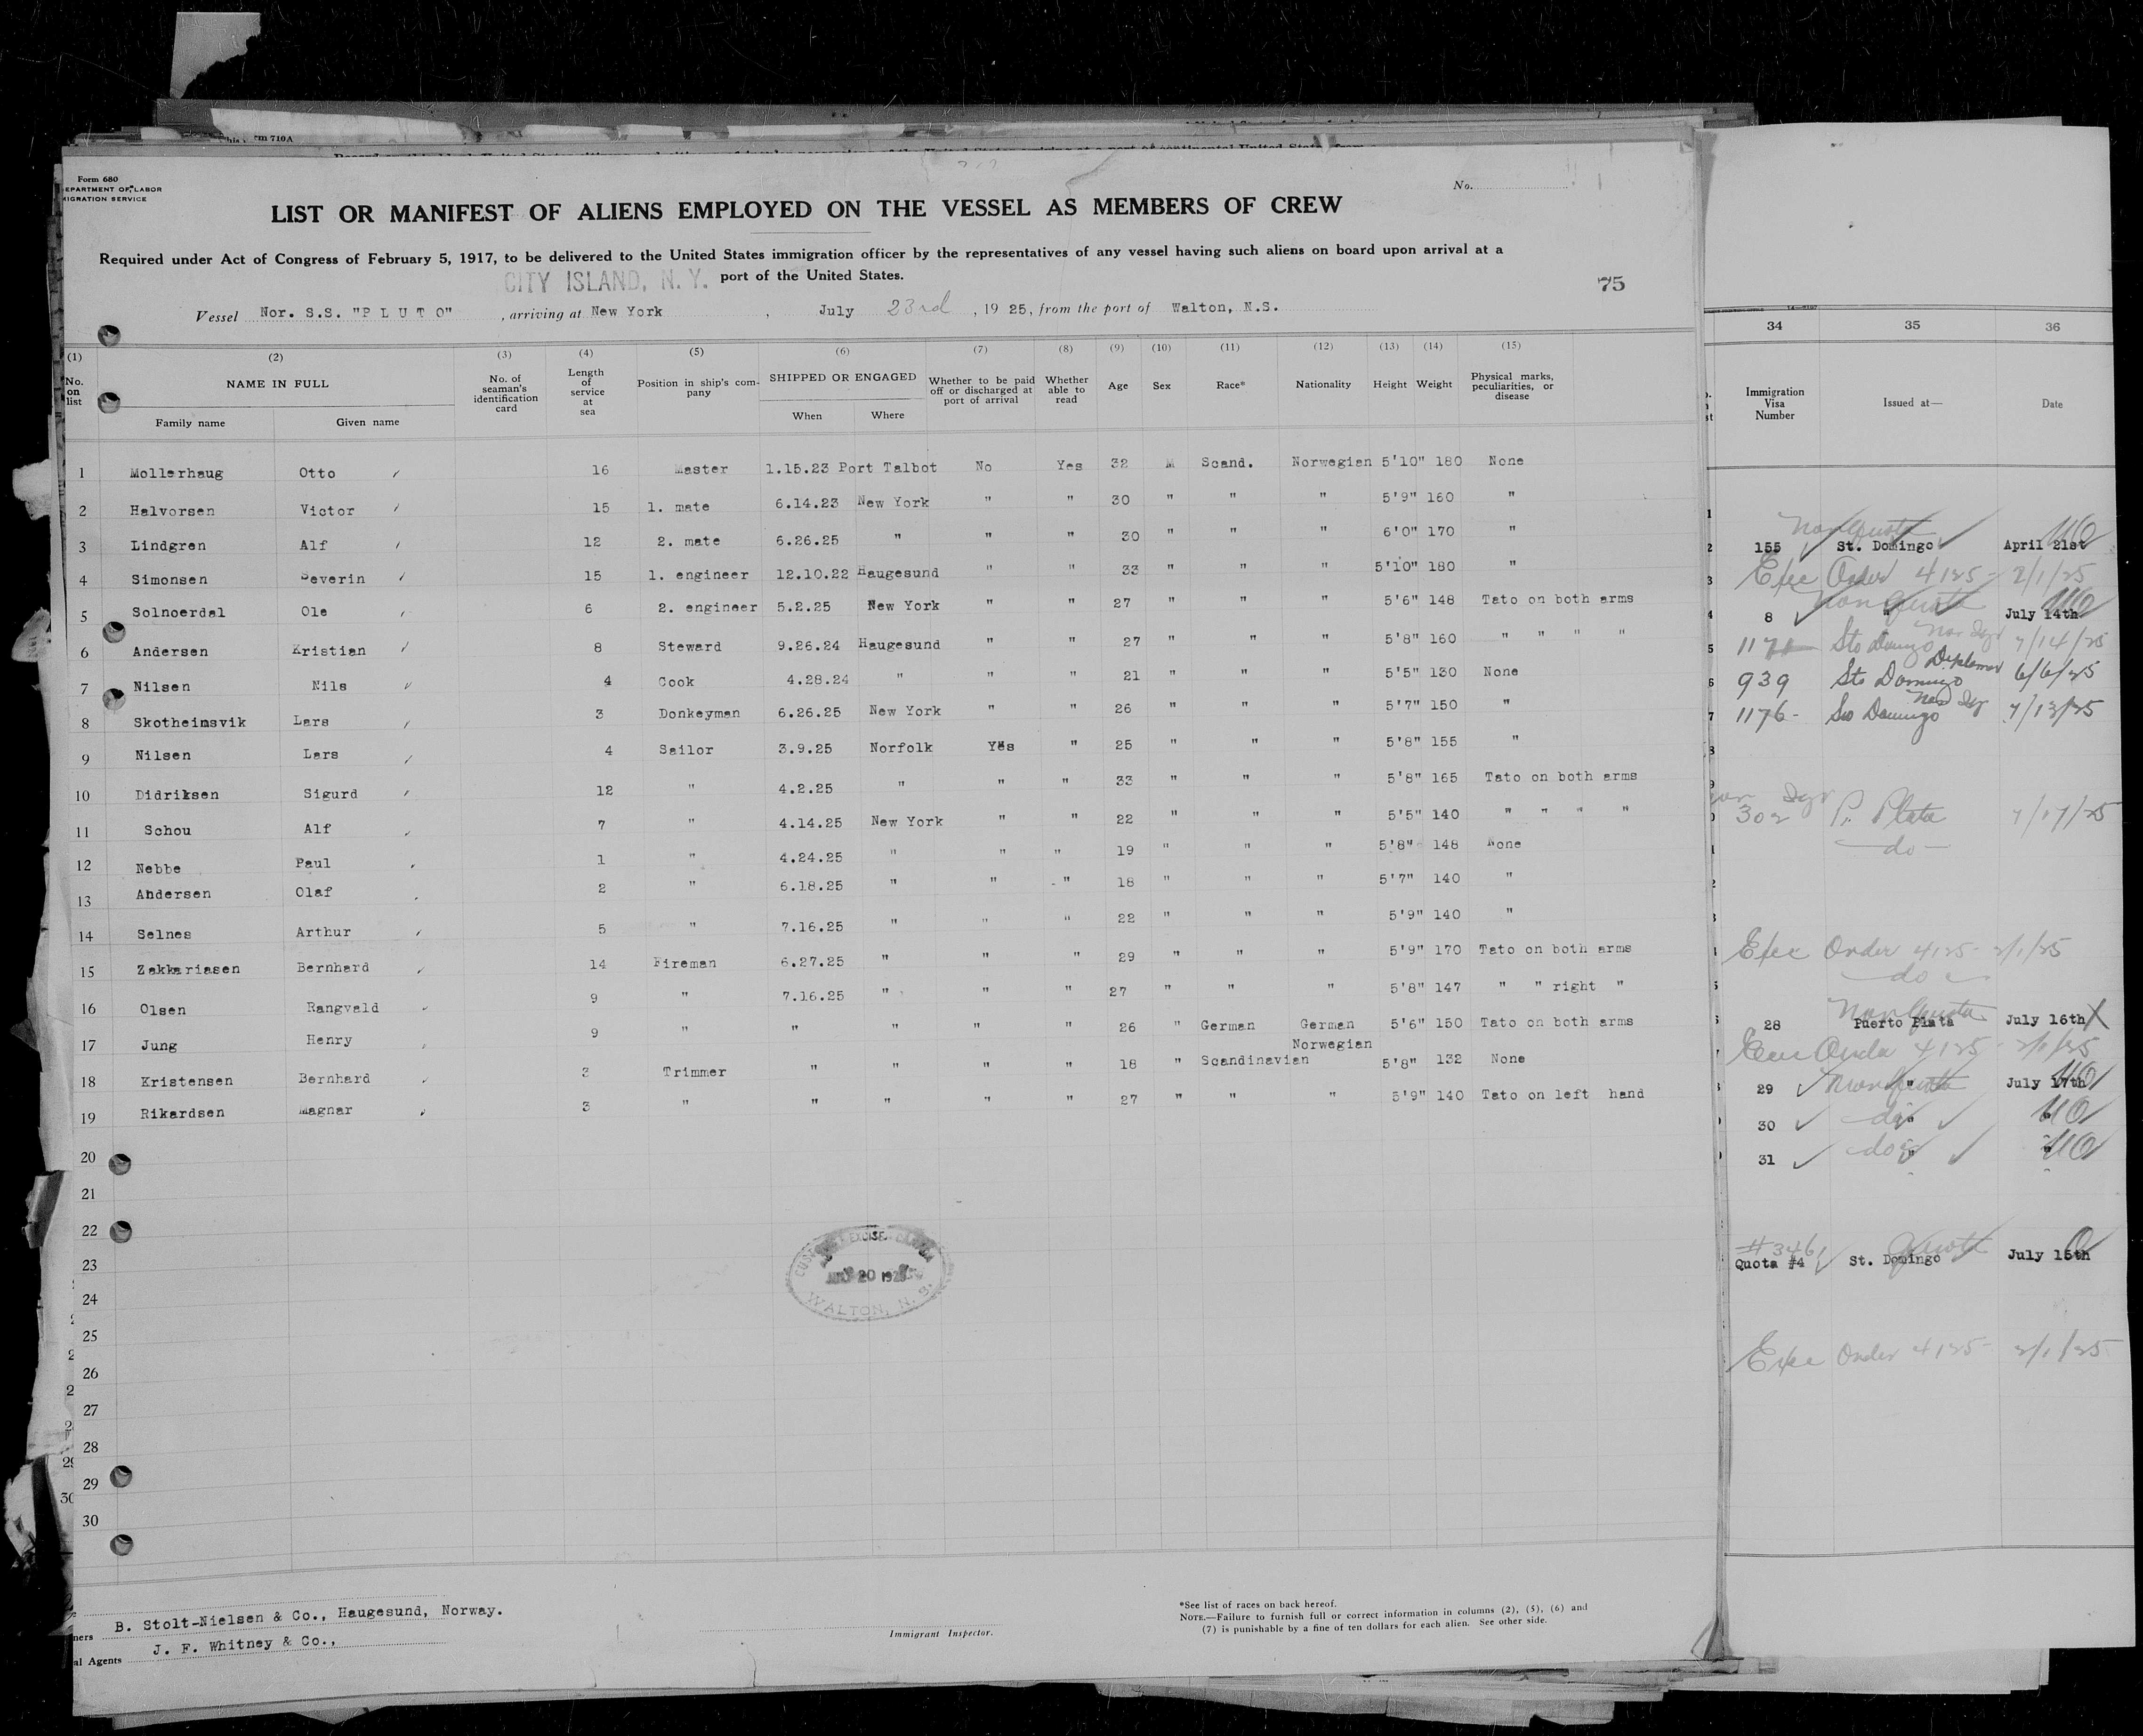 rm 710A
Form 680
EPARTMENT OF LABOR
MIGRATION SERVICE
No.
LIST OR MANIFEST OF ALIENS EMPLOYED ON THE VESSEL AS MEMBERS OF CREW
Required under Act of Congress of February 5, 1917, to be delivered to the United States immigration officer by the representatives of any vessel having such aliens on board upon arrival at a
CITY ISLAND, N.Y. port of the United States.
75
Vessel Nor. S.S. "P L U T O" , arriving at New York , July 23rd , 19 25, from the port of Walton, N.S.
(1) (2) (3) (4) (5) (6) (7) (8) (9) (10) (11) (12) (13) (14) (15)
No. on list NAME IN FULL Family name Given name No. of seaman's identification card Length of service at sea Position in ship's company SHIPPED OR ENGAGED When Where Whether to be paid off or discharged at port of arrival Whether able to read Age Sex Race* Nationality Height Weight Physical marks, peculiarities, or disease
1 Mollerhaug Otto 16 Master 1.15.23 Port Talbot No Yes 32 M Scand. Norwegian 5'10" 180 None
2 Halvorsen Victor 15 1. mate 6.14.23 New York " " 30 " " " 5'9" 160 "
3 Lindgren Alf 12 2. mate 6.26.25 " " " 30 " " " 6'0" 170 "
4 Simonsen Severin 15 1. engineer 12.10.22 Haugesund " " 33 " " " 5'10" 180 "
5 Solnoerdal Ole 6 2. engineer 5.2.25 New York " " 27 " " " 5'6" 148 Tato on both arms
6 Andersen Kristian 8 Steward 9.26.24 Haugesund " " 27 " " " 5'8" 160 " " " "
7 Nilsen Nils 4 Cook 4.28.24 " " " 21 " " " 5'5" 130 None
8 Skotheimsvik Lars 3 Donkeyman 6.26.25 New York " " 26 " " " 5'7" 150 "
9 Nilsen Lars 4 Sailor 3.9.25 Norfolk Yes " 25 " " " 5'8" 155 "
10 Didriksen Sigurd 12 " 4.2.25 " " " 33 " " " 5'8" 165 Tato on both arms
11 Schou Alf 7 " 4.14.25 New York " " 22 " " " 5'5" 140 " " " "
12 Nebbe Paul 1 " 4.24.25 " " " 19 " " " 5'8" 148 None
13 Andersen Olaf 2 " 6.18.25 " " " 18 " " " 5'7" 140 "
14 Selnes Arthur 5 " 7.16.25 " " " 22 " " " 5'9" 140 "
15 Zakkariasen Bernhard 14 Fireman 6.27.25 " " " 29 " " " 5'9" 170 Tato on both arms
16 Olsen Rangvald 9 " 7.16.25 " " " 27 " " " 5'8" 147 " " right "
17 Jung Henry 9 " " " " " 26 " German German 5'6" 150 Tato on both arms
18 Kristensen Bernhard 3 Trimmer " " " " 18 " Scandinavian Norwegian 5'8" 132 None
19 Rikardsen Magnar 3 " " " " " 27 " " " 5'9" 140 Tato on left hand
20
21
22
23
24
25
26
27
28
29
30
CUSTOMS EXCISE CANADA
20 192
WALTON, N.S.
ners B. Stolt-Nielsen & Co., Haugesund, Norway.
al Agents J. F. Whitney & Co.,
Immigrant Inspector.
*See list of races on back hereof.
NOTE.—Failure to furnish full or correct information in columns (2), (5), (6) and
(7) is punishable by a fine of ten dollars for each alien. See other side.
34 35 36
Immigration Visa Number Issued at— Date
Non Quota
155 St. Domingo April 21st
Exec Order 4125 - 2/1/25
Non Quota
8 " July 14th
1171 Sto Domingo 7/14/25
939 Sto Domingo Diplomav 6/6/25
1176 - Sto Domingo 7/13/25
302 P. Plata 7/17/25
do
Exec Order 4125 - 2/1/25
do
Non Quota
28 Puerto Plata July 16th
Exec Order 4125 - 2/1/25
29 Non Quota " July 17th
30 do "
31 do "
#3461 Quota
Quota #4 St. Domingo July 15th
Exec Order 4125 - 2/1/25